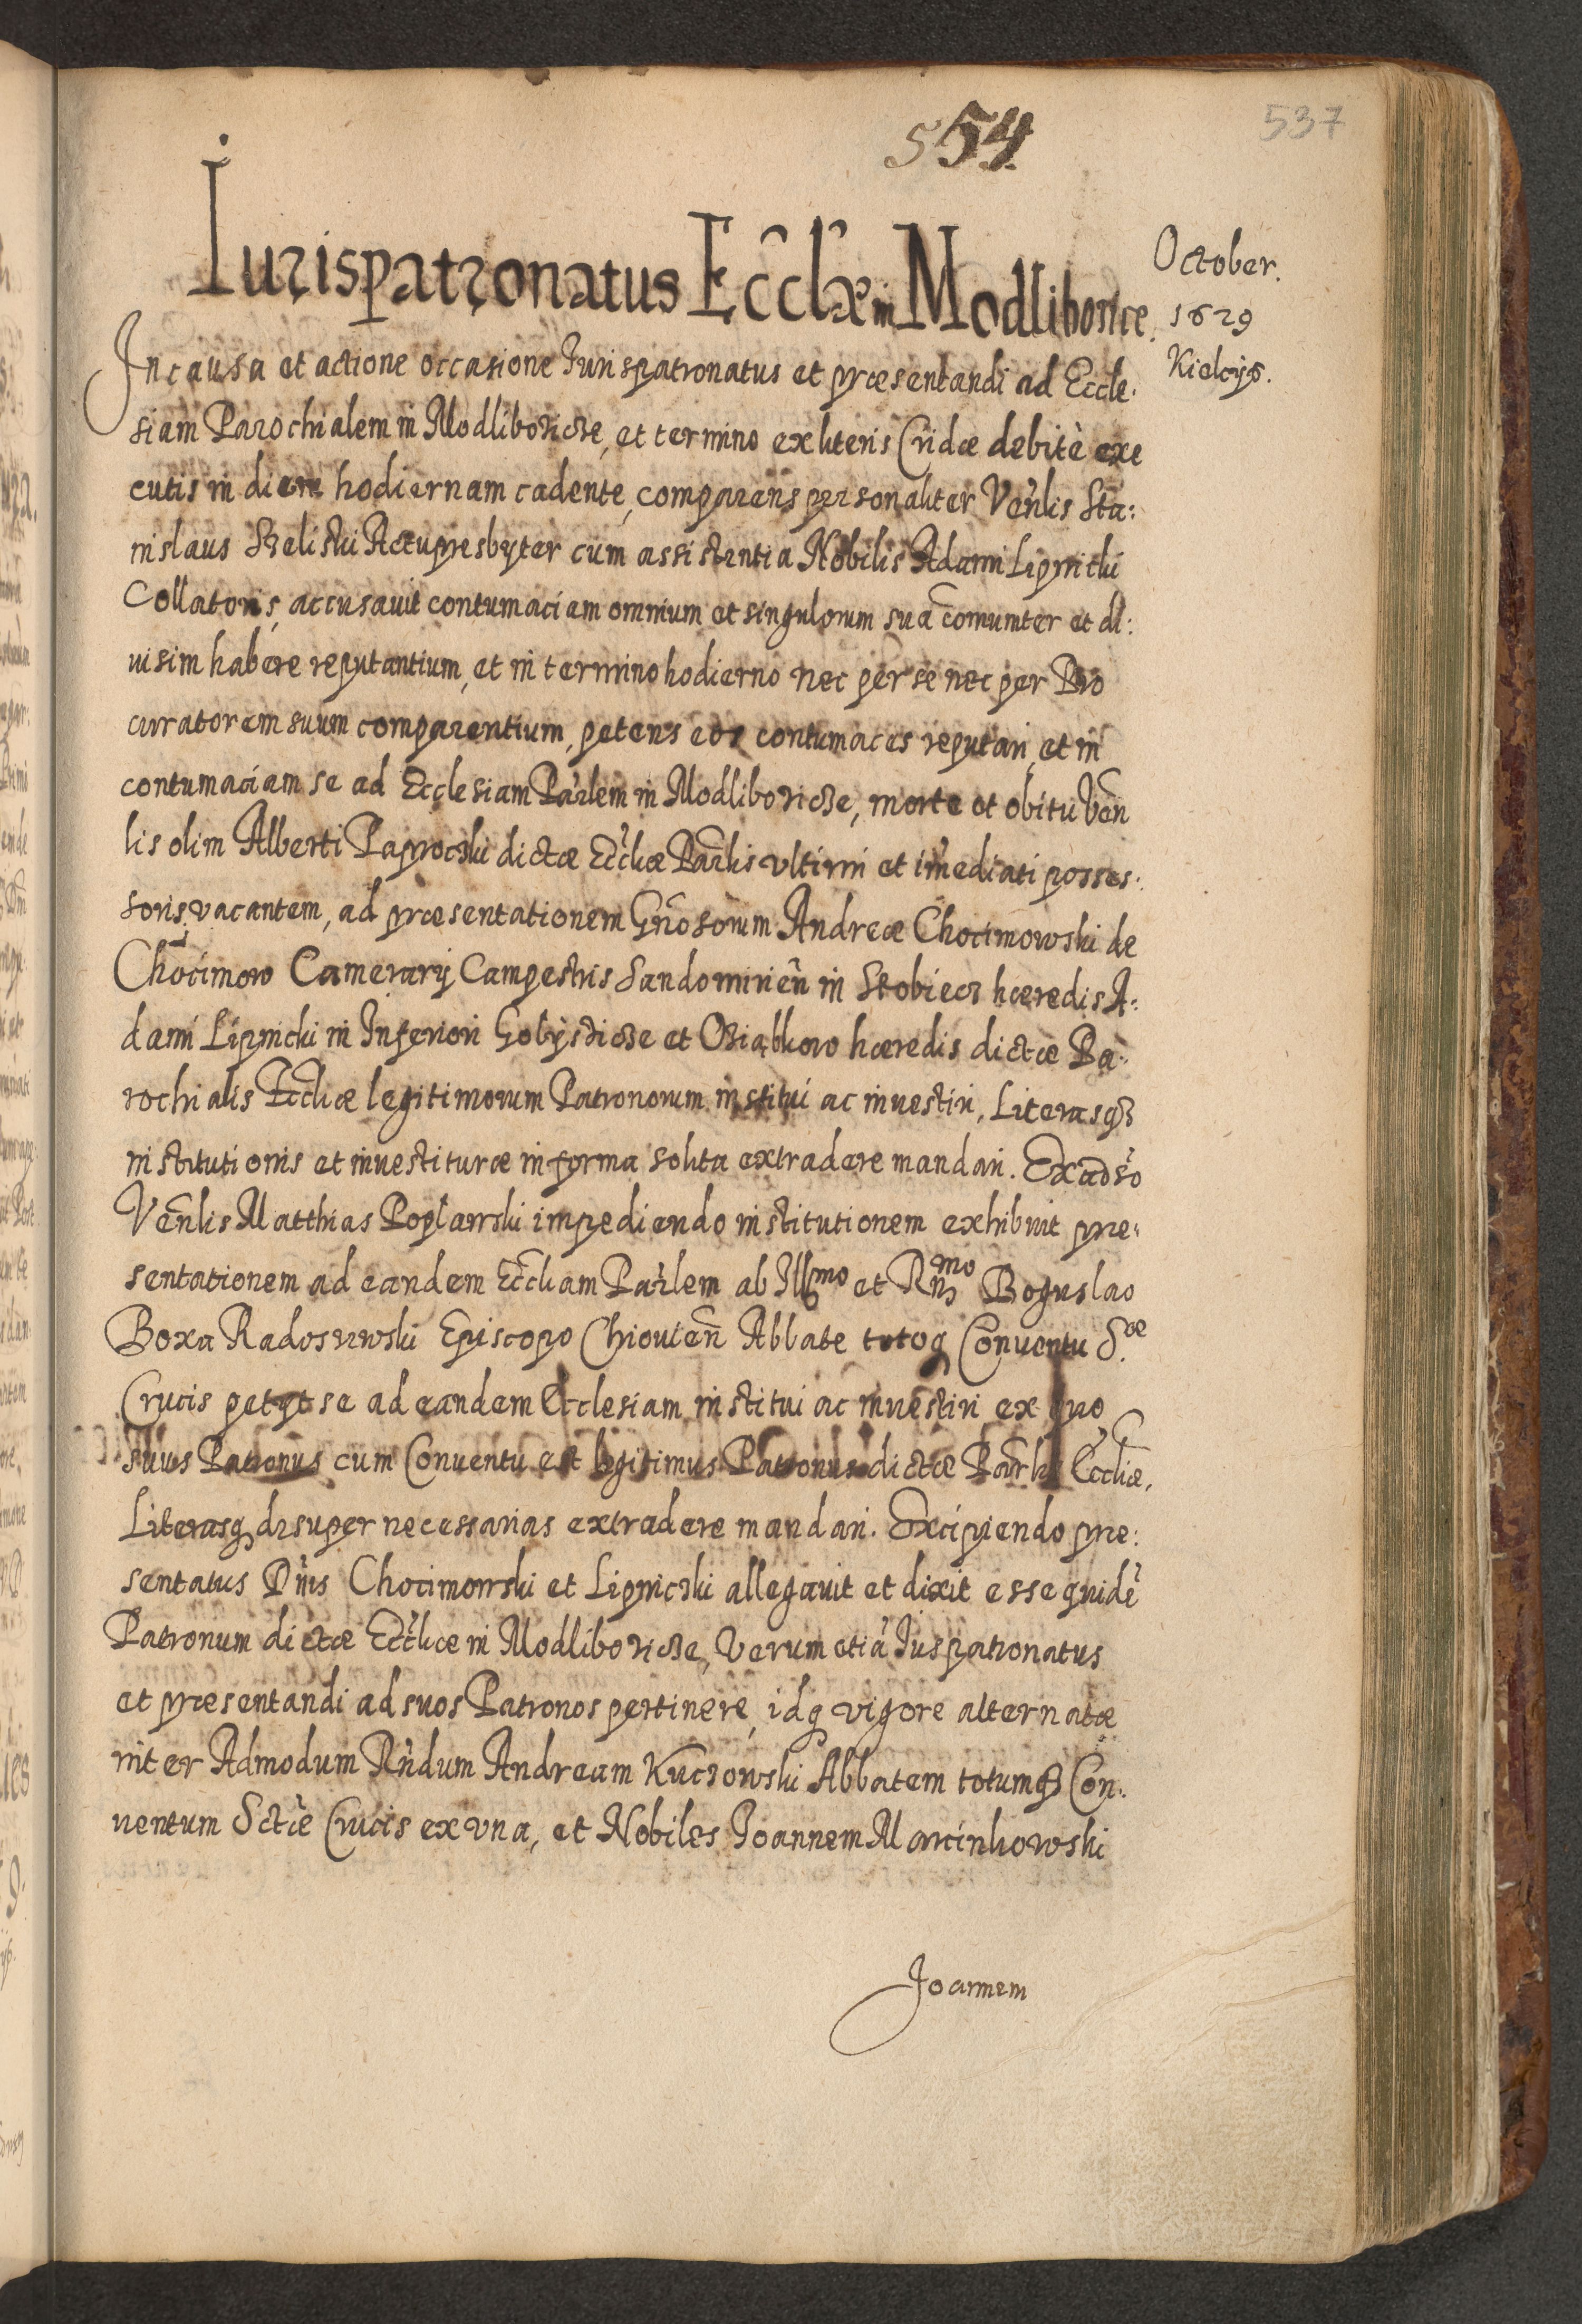 554
537
Iurispatronatus Ecclæ in Modliborice.
October.
1629
Kielcijs.
In causa et actione occasione Iurispatronatus et præsentandi ad Eccle:
siam Parochialem in Modliboricze, et termino ex literis Cridæ debitè exe
cutis in diem hodiernam cadente, comparens personaliter Venlis Sta:
nislaus Actupresbyter cum assistentia Nobilis Adami Lipnicki
Collatoris, accusavit contumaciam omnium et singulorum sua comuniter et di:
uisim habere reputantium, et in termino hodierno nec per se nec per Pro
curatorem suum comparentium, petens eos contumaces reputari, et in
contumaciam se ad Ecclesiam Parlem in Modliboricze, morte et obitu Ven
lis olim Alberti Paprocki dictæ Eccliæ Parlis vltimi et imediati posses:
soris vacantem, ad præsentationem Gnosorum Andreæ Chocimowski de
Chocimow Camerarij Campestris Sandomirien in Skobiecz hæredis A:
dami Lipnicki in Inferiori et hæredis dictæ Pa:
rochialis Eccliæ legitimorum Patronorum institui ac inuestiri, Literasq3
institutionis et inuestituræ in forma solita extradere mandari. Ex adso
Venlis Matthias Poplawski impediendo institutionem exhibuit pre:
sentationem ad eandem Eccliam Parlem ab Illmo et Rndmo Boguslao
Boxa Radoszewski Episcopo Chiouien Abbate totoq Conuentu S.æ
Crucis petijt se ad eandem Ecclesiam institui ac inuestiri ex quo
suus Patronus cum Conuentu est legitimus Patronus dictæ Parlis Eccliæ,
Literasq desuper necessarias extradere mandari. Excipiendo pre:
sentatus Dnis Chocimowski et Lipnicki allegauit et dixit esse quidē
Patronum dictæ Eccliæ in Modliboricze, Verum etiā Iuspatronatus
et præsentandi ad suos Patronos pertinere, idq vigore alternatæ
inter Admodum Rndum Andream Kuczowski Abbatem totumq3 Con:
uentum Sctæ Crucis ex vna, et Nobiles Joannem Marcinkowski
Joannem